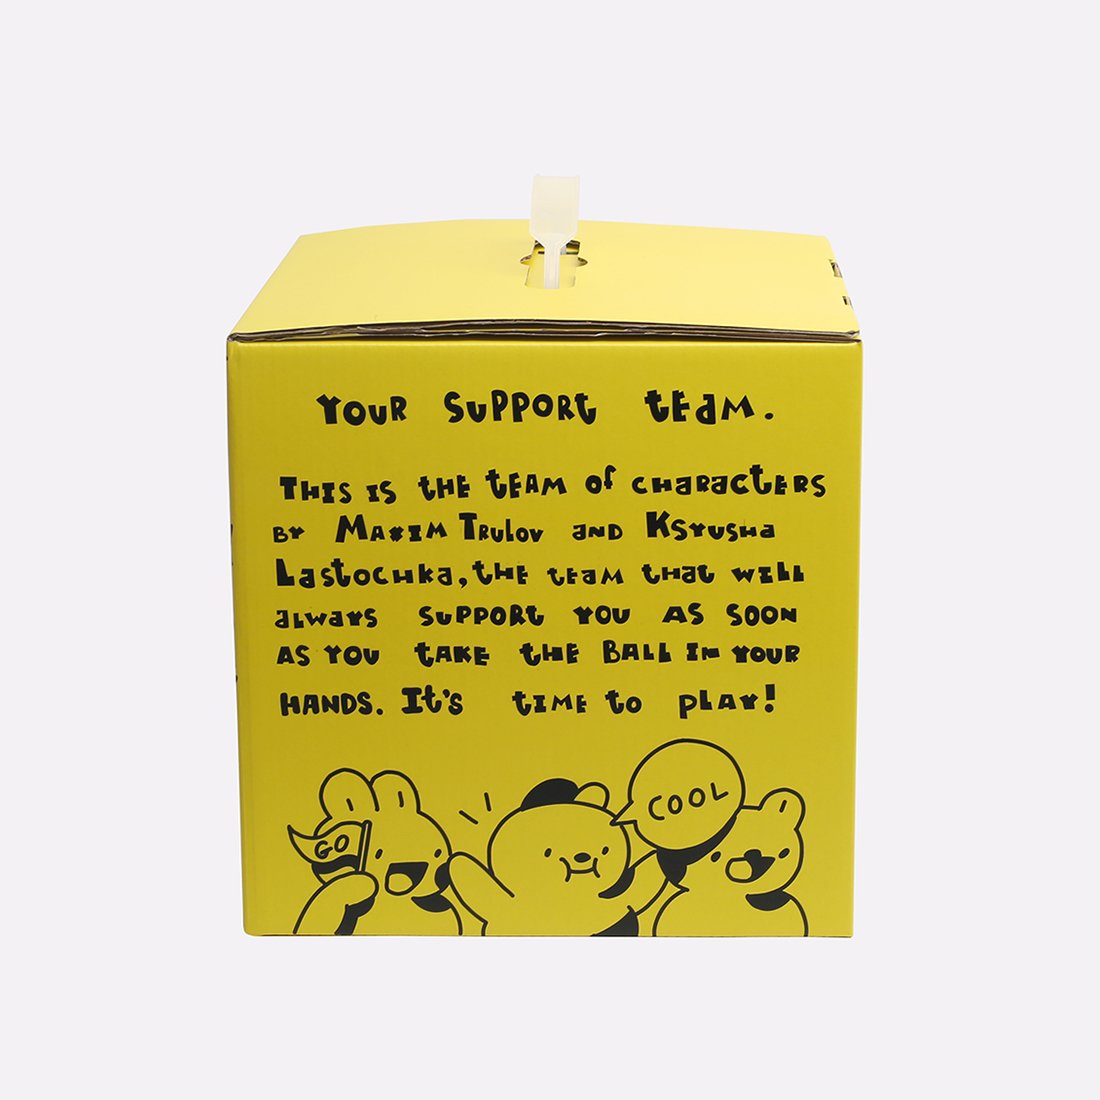 YOUR SUPPORT TEAM.
THIS IS THE TEAM OF CHARACTERS
BY MAXIM TRULOV AND KSYUSHA
LASTOCHKA, THE TEAM THAT WILL
ALWAYS SUPPORT YOU AS SOON
AS YOU TAKE THE BALL IN YOUR
HANDS. IT'S TIME TO PLAY!
COOL
GO